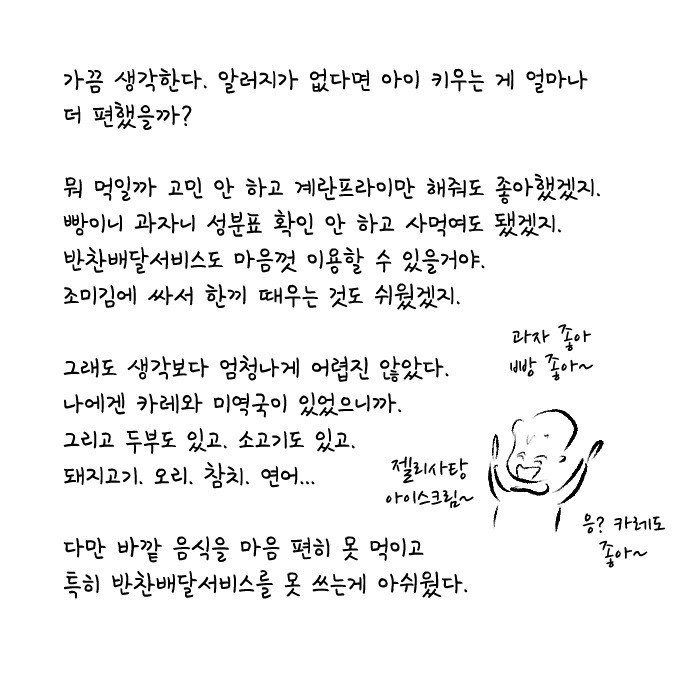 가끔 생각한다. 알러지가 없다면 아이 키우는 게 얼마나
더 편했을까?
뭐 먹일까 고민 안 하고 계란프라이만 해줘도 좋아했겠지.
빵이니 과자니 성분표 확인 안 하고 사먹여도 됐겠지.
반찬배달서비스도 마음껏 이용할 수 있을거야.
조미김에 싸서 한끼 때우는 것도 쉬웠겠지.
그래도 생각보다 엄청나게 어렵진 않았다.
나에겐 카레와 미역국이 있었으니까.
그리고 두부도 있고. 소고기도 있고.
돼지고기. 오리. 참치. 연어...
다만 바깥 음식을 마음 편히 못 먹이고
특히 반찬배달서비스를 못 쓰는게 아쉬웠다.
과자 좋아
빵 좋아~
젤리사탕
아이스크림~
응? 카레도
좋아~